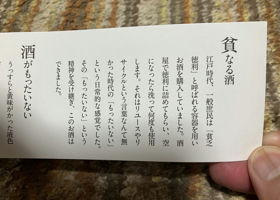 貧なる酒
江戸時代、一般庶民は「貧乏
徳利」と呼ばれる容器を用い
お酒を購入していました。酒
屋で徳利に詰めてもらい、空
になったら洗って何度も使用
します。それはリユースやリ
サイクルという言葉なんて無
かった時代の「もったいない」
という日常的な感覚でした。
その「もったいない」という
精神を受け継ぎ、このお酒は
できました。
酒がもったいない
うっすらと黄味がかった液色